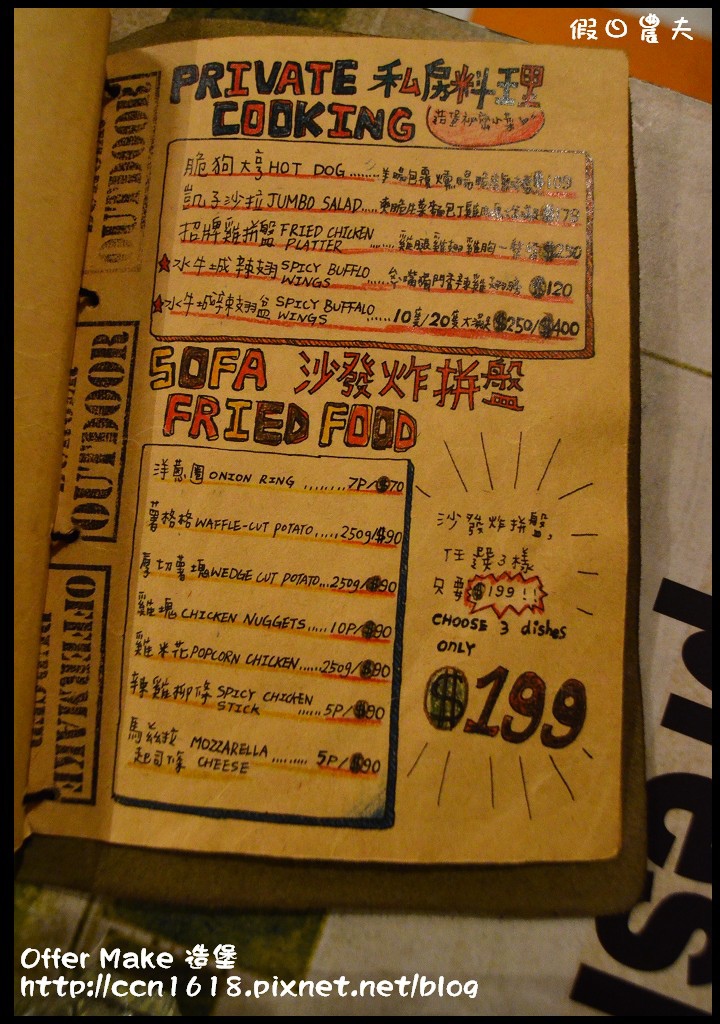 假日農夫
PRIVATE 私房料理
COOKING
OUTDOOR
脆狗大亨 HOT DOG
凱子沙拉 JUMBO SALAD
$178
招牌雞拼盤 FRIED CHICKEN PLATTER
$250
★水牛城辣翅 SPICY BUFFLO WINGS
$120
★水牛城辣翅盆 SPICY BUFFALO WINGS ..... 10隻/20隻 $250/$400
SOFA 沙發炸拼盤
FRIED FOOD
OUTDOOR
洋蔥圈 ONION RING ........ 7P/$70
薯格格 WAFFLE-CUT POTATO ..... 250g/$90
厚切薯塊 WEDGE CUT POTATO ... 250g/$90
雞塊 CHICKEN NUGGETS ..... 10P/$90
雞米花 POPCORN CHICKEN ..... 250g/$90
辣雞柳條 SPICY CHICKEN STICK ...... 5P/$90
馬茲拉起司條 MOZZARELLA CHEESE ......... 5P/$90
OFFERMAKE
沙發炸拼盤,
任選3樣
只要 $199!!
CHOOSE 3 dishes
ONLY
$199
Offer Make 造堡
http://ccn1618.pixnet.net/blog